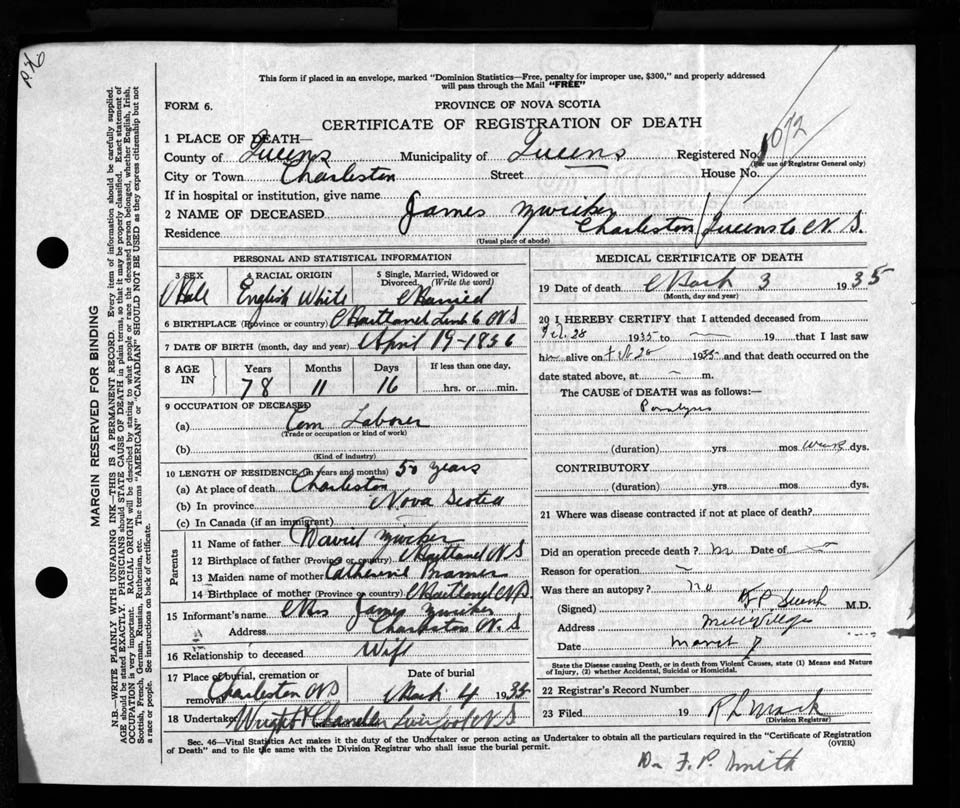 P.K6
This form if placed in an envelope, marked "Dominion Statistics—Free, penalty for improper use, $300," and properly addressed
will pass through the Mail "FREE"
FORM 6.
PROVINCE OF NOVA SCOTIA
CERTIFICATE OF REGISTRATION OF DEATH
1 PLACE OF DEATH—
County of Queens Municipality of Queens Registered No. 1072
(For use of Registrar General only)
City or Town Charleston Street House No.
If in hospital or institution, give name
2 NAME OF DECEASED James Zwicker
Residence Charleston Queens Co N.S.
(Usual place of abode)
PERSONAL AND STATISTICAL INFORMATION
3 SEX 4 RACIAL ORIGIN 5 Single, Married, Widowed or
Divorced. (Write the word)
Male English White Married
6 BIRTHPLACE (Province or country) Maitland Lunb Co NS
7 DATE OF BIRTH (month, day and year) April 19-1856
8 AGE IN Years Months Days If less than one day,
78 11 16 hrs. or min.
9 OCCUPATION OF DECEASED
(a) Com Laborer
(Trade or occupation or kind of work)
(b)
(Kind of industry)
10 LENGTH OF RESIDENCE (in years and months) 50 years
(a) At place of death Charleston
(b) In province Nova Scotia
(c) In Canada (if an immigrant)
Parents
11 Name of father David Zwicker
12 Birthplace of father (Province or country) Maitland NS
13 Maiden name of mother Catherine
14 Birthplace of mother (Province or country) Maitland NS
15 Informant's name Mrs James Zwicker
Address Charleston N.S
16 Relationship to deceased Wife
17 Place of burial, cremation or Date of burial
removal Charleston NS March 4 1935
18 Undertaker Wright Chandler NS
MEDICAL CERTIFICATE OF DEATH
19 Date of death March 3 1935
(Month, day and year)
20 I HEREBY CERTIFY that I attended deceased from
Feb. 28 1935 to 19 that I last saw
him alive on Feb 28 1935 and that death occurred on the
date stated above, at m.
The CAUSE OF DEATH was as follows:—
Paralysis
(duration) yrs mos dys.
CONTRIBUTORY
(duration) yrs mos. dys.
21 Where was disease contracted if not at place of death?
Did an operation precede death? no Date of
Reason for operation
Was there an autopsy? no
(Signed) F P Smith M.D.
Address Mill Village
Date March 7
State the Disease causing Death, or in death from Violent Causes, state (1) Means and Nature
of Injury, (2) whether Accidental, Suicidal or Homicidal.
22 Registrar's Record Number
23 Filed 19 R L
(Division Registrar)
Sec. 46—Vital Statistics Act makes it the duty of the Undertaker or person acting as Undertaker to obtain all the particulars required in the "Certificate of Registration
of Death" and to file the same with the Division Registrar who shall issue the burial permit.
(OVER)
Dr F. P. Smith
MARGIN RESERVED FOR BINDING
N.B.—WRITE PLAINLY WITH UNFADING INK—THIS IS A PERMANENT RECORD. Every item of information should be carefully supplied.
AGE should be stated EXACTLY. PHYSICIANS should STATE CAUSE OF DEATH in plain terms, so that it may be properly classified. Exact statement of
OCCUPATION is very important. RACIAL ORIGIN will be described by stating to what people or race the deceased person belonged, whether English, Irish,
Scottish, French, German, Russian, Ruthenian, etc. The terms "AMERICAN" or "CANADIAN" SHOULD NOT BE USED as they express citizenship but not
a race or people. See instructions on back of certificate.